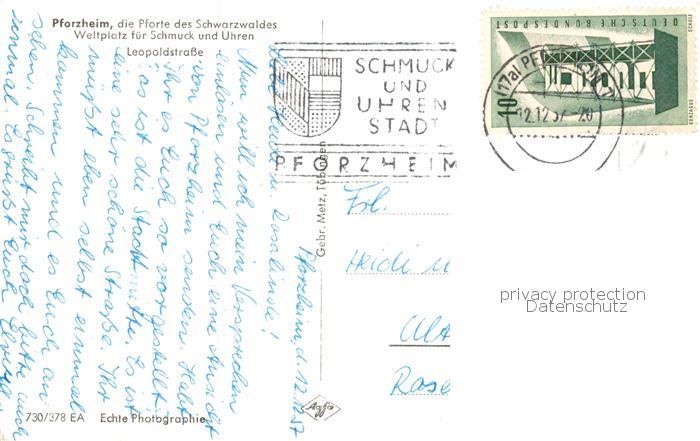 Pforzheim, die Pforte des Schwarzwaldes
Weltplatz für Schmuck und Uhren
Leopoldstraße
Pforzheim, d. 12.12.57
Rosalinde!
Nun will ich mein Versprechen
einlösen und Euch eine Ansicht
von Pforzheim senden. Habt
Ihr es Euch so vorgestellt?
Das ist die Stadtmitte. Es ist
eine sehr schöne Straße. Ihr
müßt eben selbst einmal
kommen und es Euch an-
sehen. Schreibt mir doch bitte auch
einmal. Es grüßt Euch
730/378 EA Echte Photographie
Gebr. Metz, Tübingen
Agfa
SCHMUCK
UND
UHREN
STADT
PFORZHEIM
(17a) PF
12.12.57-20
DEUTSCHE BUNDESPOST
10
Frl.
Heidi u
Rose
privacy protection
Datenschutz